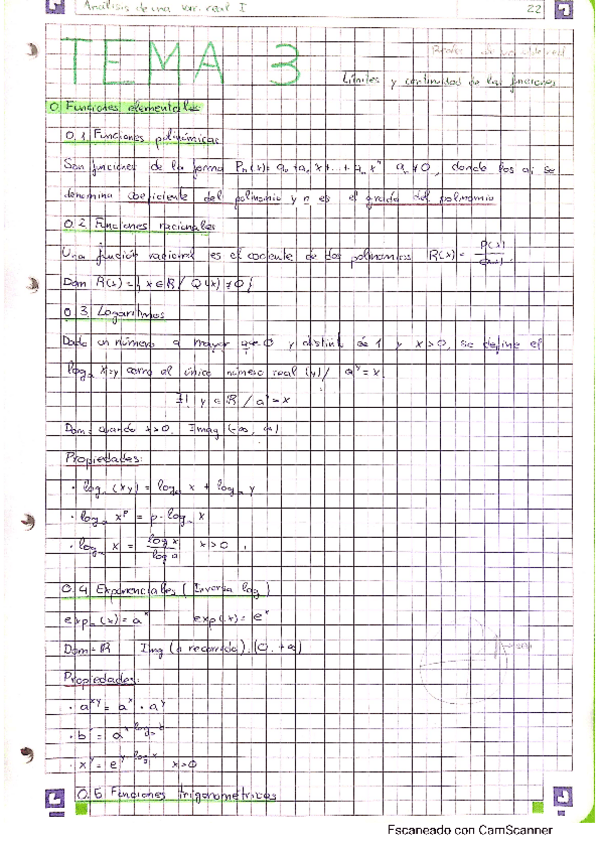 Análisis de una var. real I 22
TEMA 3
Límites y continuidad de las funciones
0. Funciones elementales
0.1 Funciones polinómicas
Son funciones de la forma Pₙ(x) = a₀ + a₁ x + ... + aₙ xⁿ aₙ ≠ 0, donde los aᵢ se
denomina coeficiente del polinomio y n es el grado del polinomio
0.2 Funciones racionales
Una función racional es el cociente de dos polinomios R(x) = P(x)/Q(x).
Dom R(x) = { x ∈ R / Q(x) ≠ 0 }
0.3 Logaritmos
Dado un número a mayor que 0 y distinto de 1 y x > 0, se define el
logₐ x = y como al único número real (y) / aʸ = x.
∃! y ∈ R / aʸ = x
Dom = cuando x > 0. Imag (-∞, ∞)
Propiedades:
· logₐ (xy) = logₐ x + logₐ y
· logₐ xᵖ = p · logₐ x
· logₐ x = log x / log a x > 0
0.4 Exponenciales (Inversa log)
expₐ(x) = aˣ exp(x) = eˣ
Dom = R Img (o recorrido). (0, +∞)
Propiedades:
· aˣʸ = aˣ · aʸ
x > 0
0.5 Funciones trigonométricas
Escaneado con CamScanner